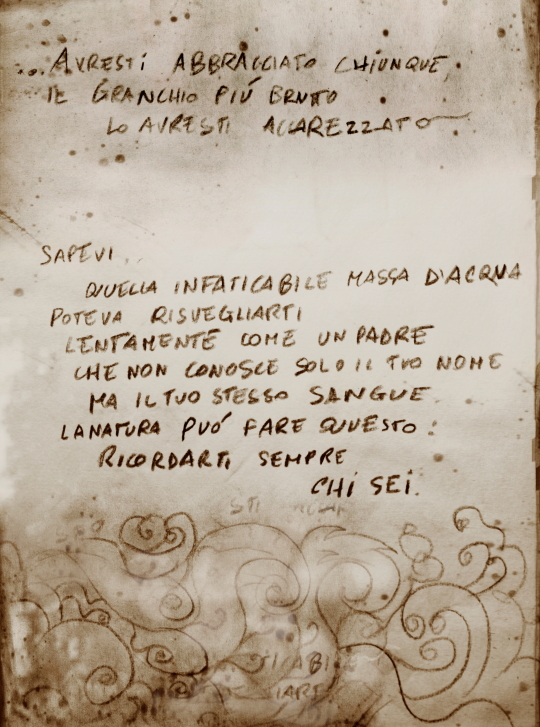 ...AVRESTI ABBRACCIATO CHIUNQUE,
IL GRANCHIO PIÚ BRUTTO
LO AVRESTI ACCAREZZATO
SAPEVI..
QUELLA INFATICABILE MASSA D'ACQUA
POTEVA RISVEGLIARTI
LENTAMENTE COME UN PADRE
CHE NON CONOSCE SOLO IL TUO NOME
MA IL TUO STESSO SANGUE.
LA NATURA PUÓ FARE QUESTO:
RICORDARTI SEMPRE
CHI SEI.